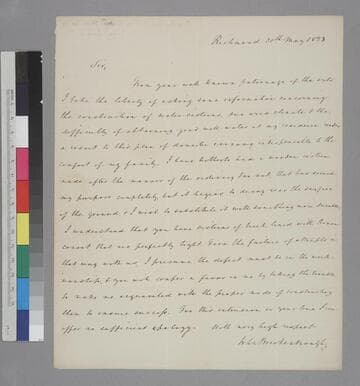 Richmond 30th May 1823
Sir,
From your well known patronage of the arts
I take the liberty of asking some information concerning
the construction of water cisterns, our arid climate & the
difficulty of obtaining good well water at my residence renders
a resort to this plan of domestic economy indispensable to the
comfort of my family. I have hitherto been a wooden cistern
made after the manner of the ordinary tan vat, that has served
my purpose completely, but it begins to decay near the surface
of the ground, & I wish to substitute it with something more durable
I understand that you have cisterns of brick lined with Roman
cement that are perfectly tight. From the failure of attempts in
that way with us, I presume the defect must be in the work-
manship, & you will confer a favor on me by taking the trouble
to make me acquainted with the proper mode of constructing
them to ensure success. For this intrusion on your time I can
offer no sufficient apology. With very high respect